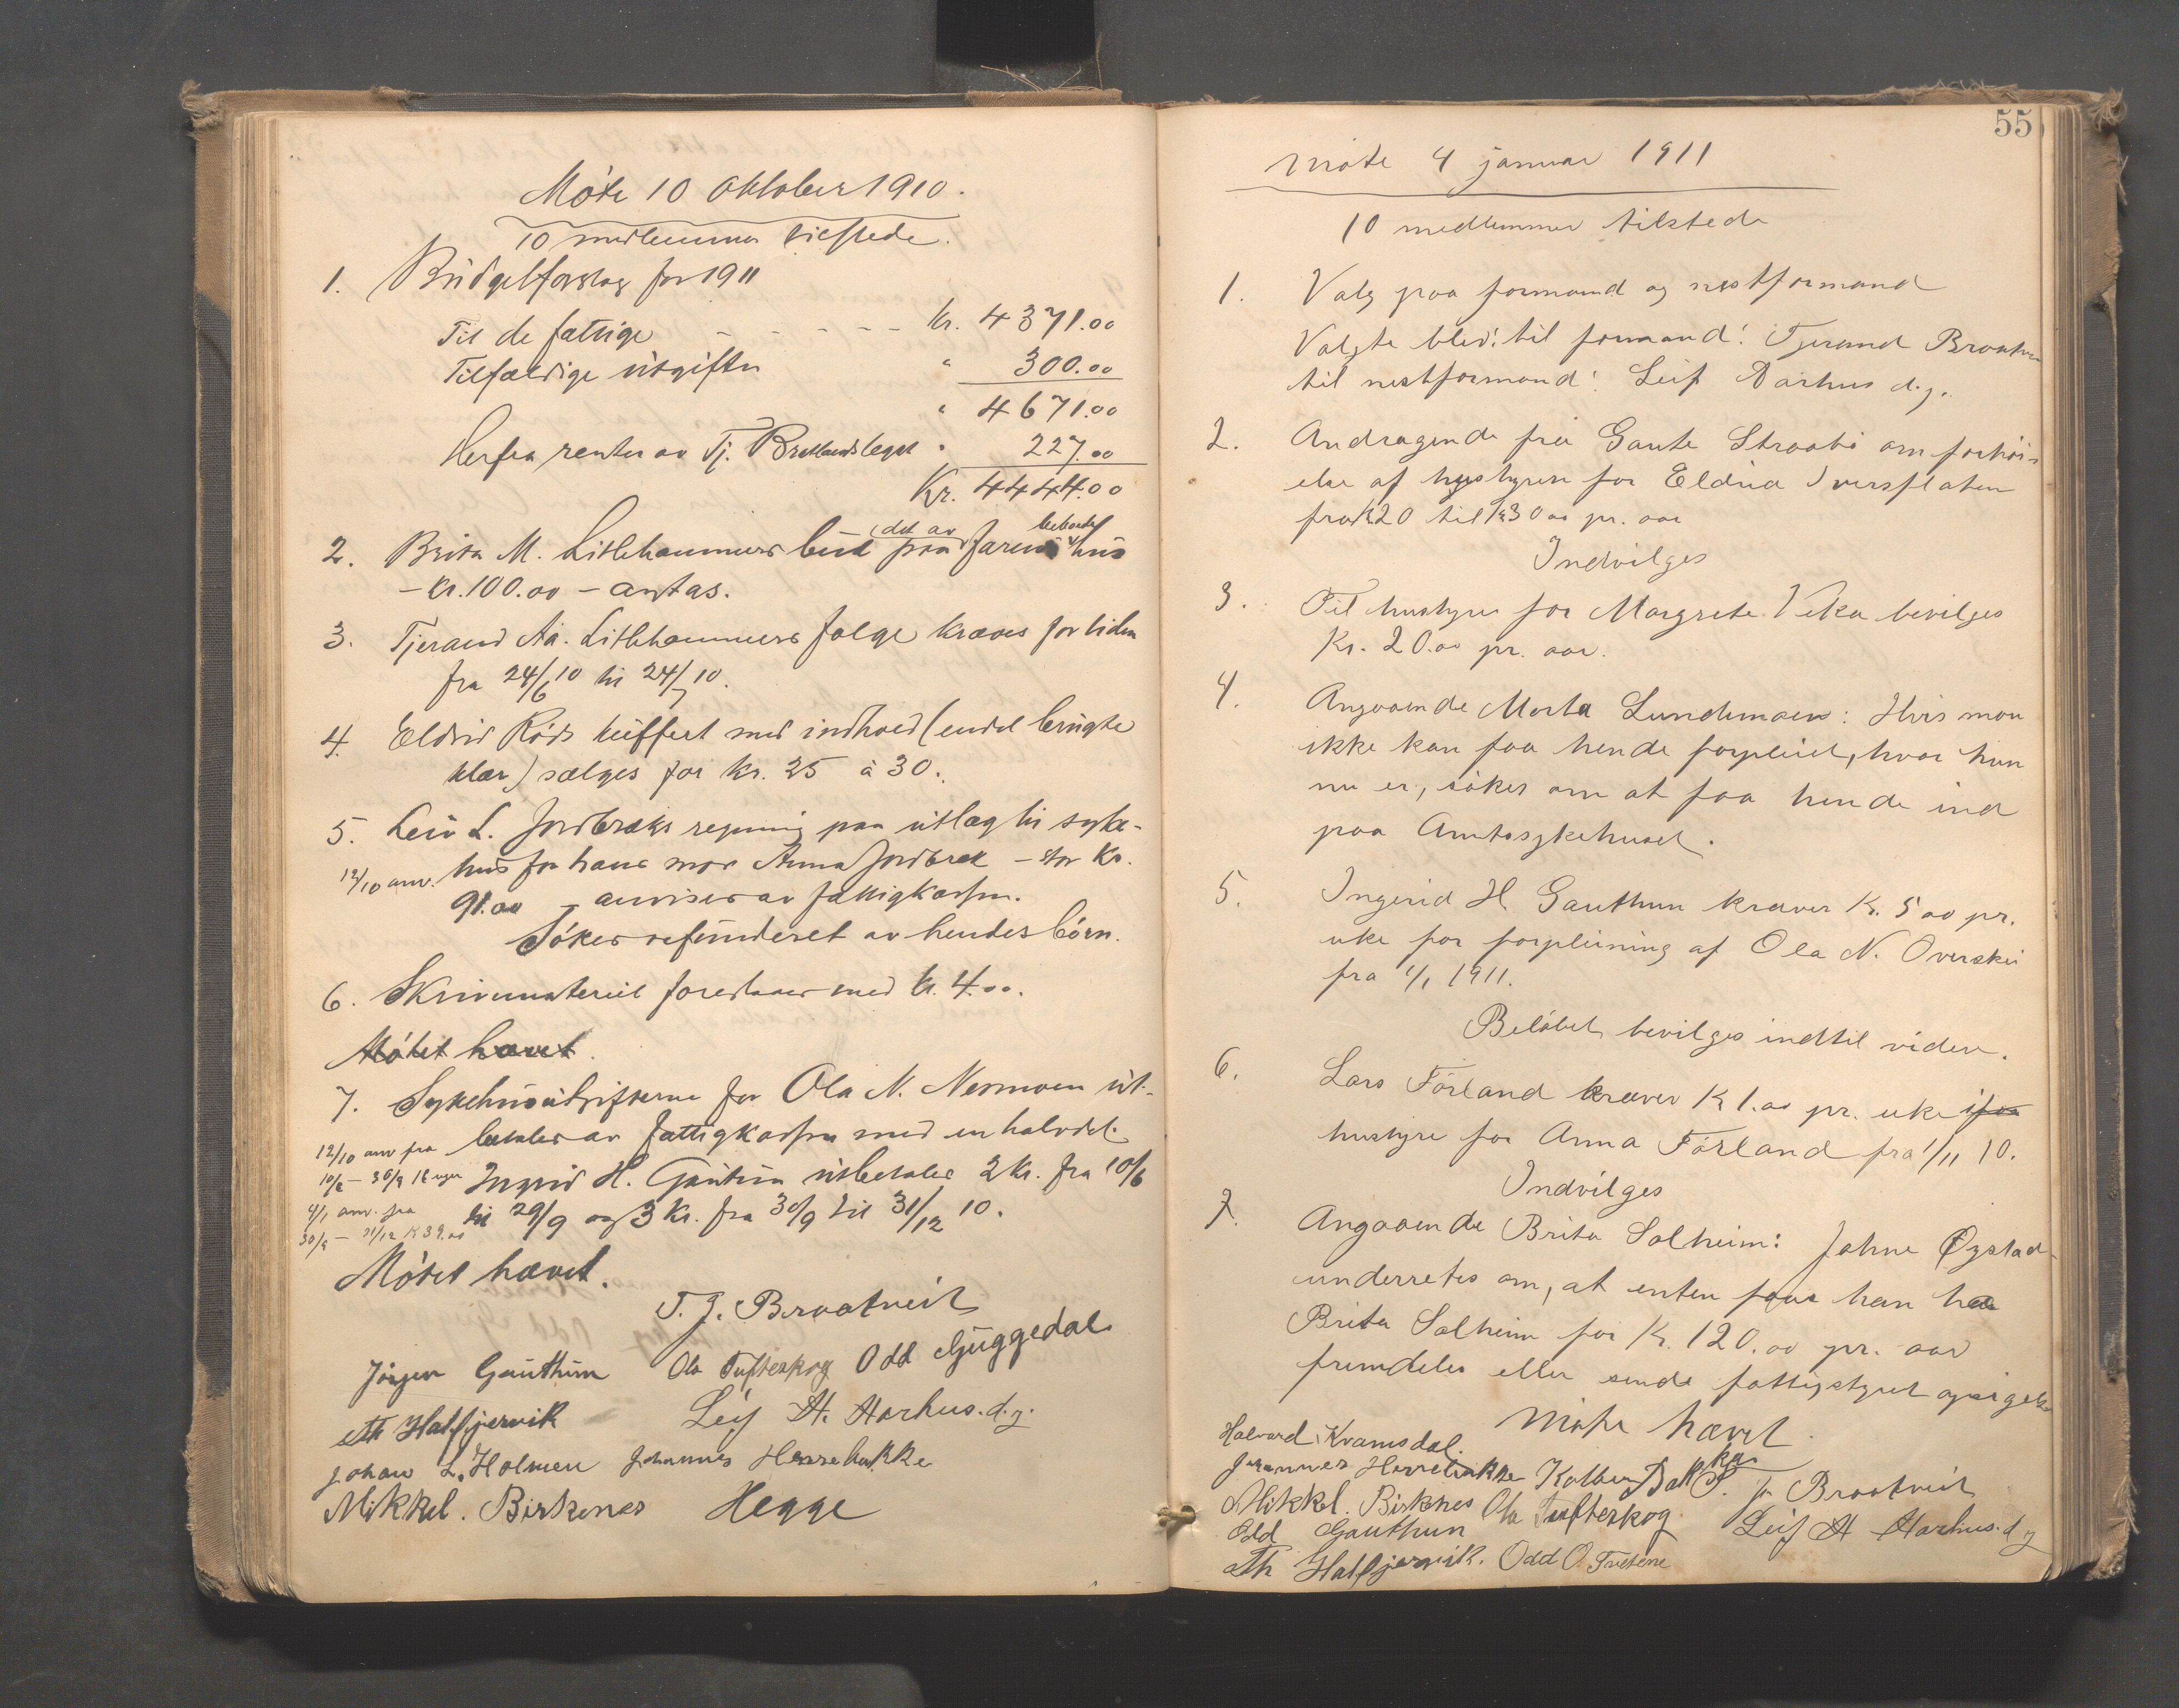 Møte 10 Oktober 1910.
10 medlemmer tilstede.
1. Budgetforslag for 1911
Til de fattige - - - - - Kr. 4371.00
Tilfældige utgifter " 300.00
" 4671.00
Herfra renter av Tj. Bratlandslegat " 227.00
Kr. 4444.00
2. Brita M. Litlehammers bud paa det av Jarens beboede hus
- kr. 100.00 - antas.
3. Tjerand Aa. Litlehammers følge kræves for tiden
fra 24/6 10 til 24/7 10.
4. Eldrid Røds kuffert med indhold (endel brugte
klær) sælges for kr. 25 à 30.
5. Leiv L. Jordbræks regning paa utlæg til syke-
12/10 anv. hus for hans mor Anna Jordbræk - stor kr.
91.00 - anvises av fattigkassen.
Søkes refunderet av hendes børn.
6. Skrivemateriel forestaaes med kr. 4.00.
Møtet hævet.
7. Sykehusutgifterne for Ola N. Nesmoen ut-
12/10 anv fra betales av fattigkassen med en halvdel.
10/6 - 30/9 16 uger Ingrid H. Gautun utbetales 2 kr. fra 10/6
4/1 anv. fra til 29/9 og 3 kr. fra 30/9 til 31/12 10.
30/9 - 31/12 K 39.00
Møtet hævet.
T. J. Braatveit
Jørgen Gauthun Ola Tufteskog Odd Guggedal
Th Halfjervik Leif A. Aarhus. d.y.
Johan L. Holmen Johannes Herrebakke
Mikkel. Birkenes Hegge
55
Møte 4 januar 1911
10 medlemmer tilstede
1. Valg paa formand og nestformand
Valgte blev: til formand: Tjerand Braatvei
til nestformand: Leif Aarhus d.y.
2. Andragende fra Gaute Straabø om forhøi-
else af hustyren for Eldrid Iversflaten
fra K 20 til K 30 00 pr. aar
Indvilges
3. Til hustyre for Margrete Veka bevilges
Kr. 20.00 pr. aar.
4. Angaaende Marta Lundemoen: Hvis man
ikke kan faa hende forpleiet, hvor hun
nu er, søkes om at faa hende ind
paa Amtssykehuset.
5. Ingerid H Gauthun kræver K. 5 00 pr.
uke for forpleining af Ola N. Overskei
fra 1/1 1911.
Beløbet bevilges indtil videre.
6. Lars Førland kræver K 1.00 pr. uke i for
hustyre for Anna Førland fra 1/11 10.
Indvilges
7. Angaaende Brita Solheim: Johne Øystad
underretes om, at enten faar han ha
Brita Solheim for Kr. 120.00 pr. aar
fremdeles eller sende fattigstyret opsigelse
Møte hævet.
Halvard Kvamsdal.
Johannes Herrebakke Kolbein Bakka T. J. Braatveit
Mikkel. Birknes Ola Tufteskog Leif A Aarhus. d y
Odd Gauthun
Th Halfjervik. Odd O. Tvetene